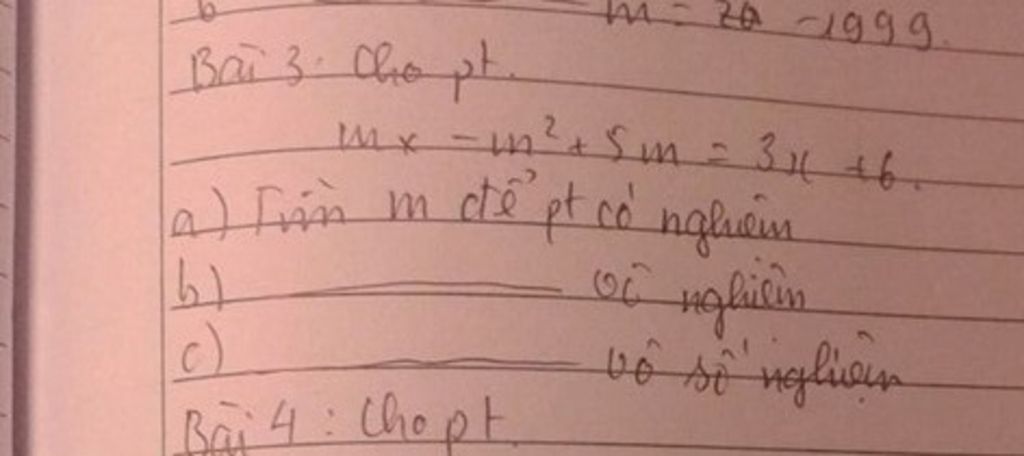 m = 20 - 1999.
Bài 3: Cho pt.
mx - m² + 5m = 3x + 6.
a) Tìm m để pt có nghiệm
b) ———— vô nghiệm
c) ———— vô số nghiệm
Bài 4: Cho pt.